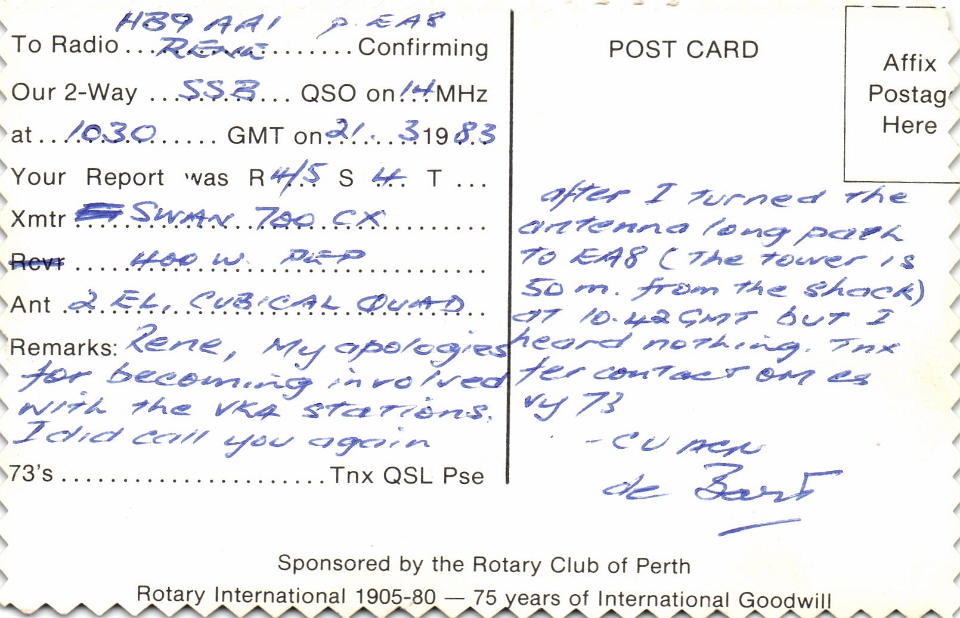 HB9 AAI p. EA8
To Radio ... RENE ... Confirming
Our 2-Way ... SSB ... QSO on 14 MHz
at ... 1030 ... GMT on 21. 3 19 83
Your Report was R 4/5 S 4 T ...
Xmtr SWAN 700 CX
Rcvr ... 400 W. PEP
Ant 2 EL, CUBICAL QUAD
Remarks: Rene, My apologies
for becoming involved
with the VK4 stations.
I did call you again
73's ... Tnx QSL Pse
POST CARD
Affix
Postag
Here
after I turned the
antenna long path
to EA8 (The tower is
50 m. from the shack)
at 10.42 GMT but I
heard nothing. Tnx
fer contact OM es
vy 73
- CU AGN
de Bart
Sponsored by the Rotary Club of Perth
Rotary International 1905-80 — 75 years of International Goodwill